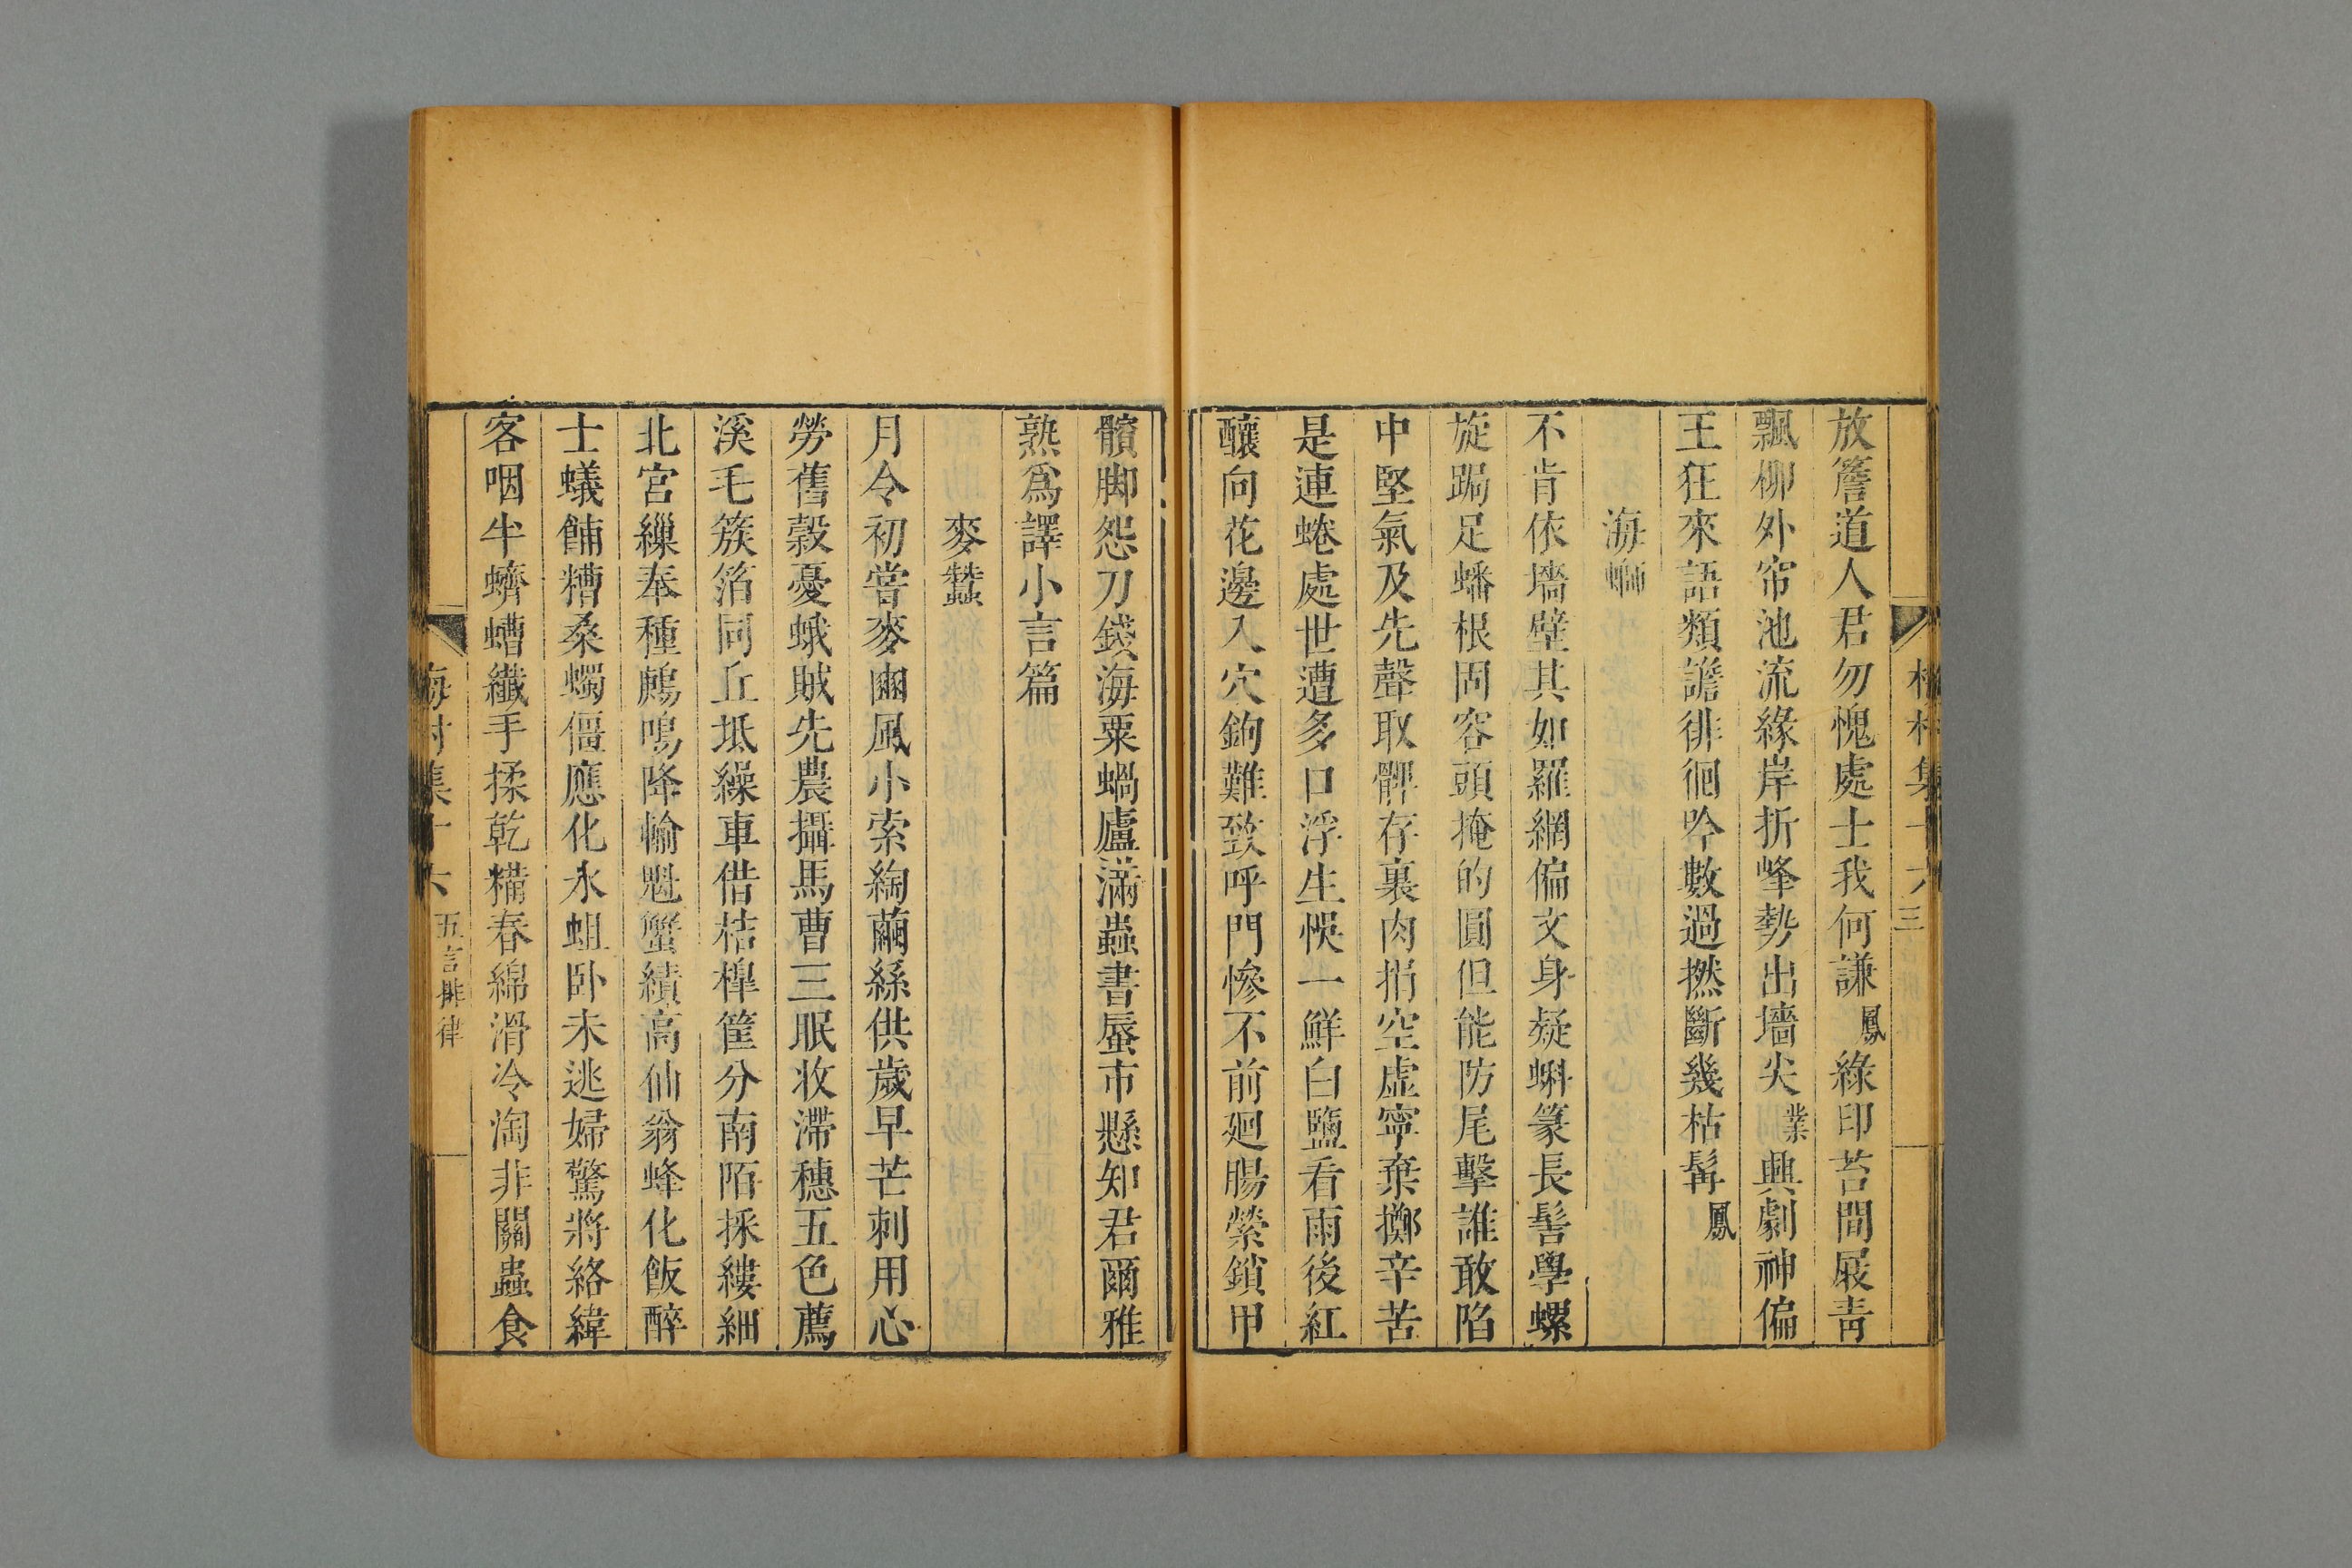 放簷道人君勿愧處士我何謙鳳綠印苔間屐靑
飄柳外帘池流緣岸折峰勢出墻尖業興劇神偏
王狂來語類譫徘徊吟數過撚斷幾枯髯鳳
海螄
不肯依墻壁其如羅網偏文身疑蝌篆長髻學螺
旋跼足蟠根固容頭掩的圓但能防尾擊誰敢陷
中堅氣及先聲取髀存裹肉捐空虛寧棄擲辛苦
是連蜷處世遭多口浮生悮一鮮白鹽看雨後紅
釀向花邊入穴鉤難致呼門慘不前廻腸縈鎖甲
髕脚怨刀錢海粟蝸廬滿蟲書蜃市懸知君爾雅
熟爲譯小言篇
麥蠶
月令初嘗麥豳風小索綯繭絲供歲早芒刺用心
勞舊穀憂蛾賊先農攝馬曹三眠收滯穗五色薦
溪毛簇箔同丘坻繰車借桔槹筐分南陌採縷細
北宮繅奉種鳸鳴降輸魁蟹績高仙翁蜂化飯醉
士蟻餔糟桑蠋僵應化氷蛆卧未逃婦驚將絡緯
客咽半蠐螬纖手揉乾糒春綿滑冷淘非關蟲食
海村集十六 五言排律